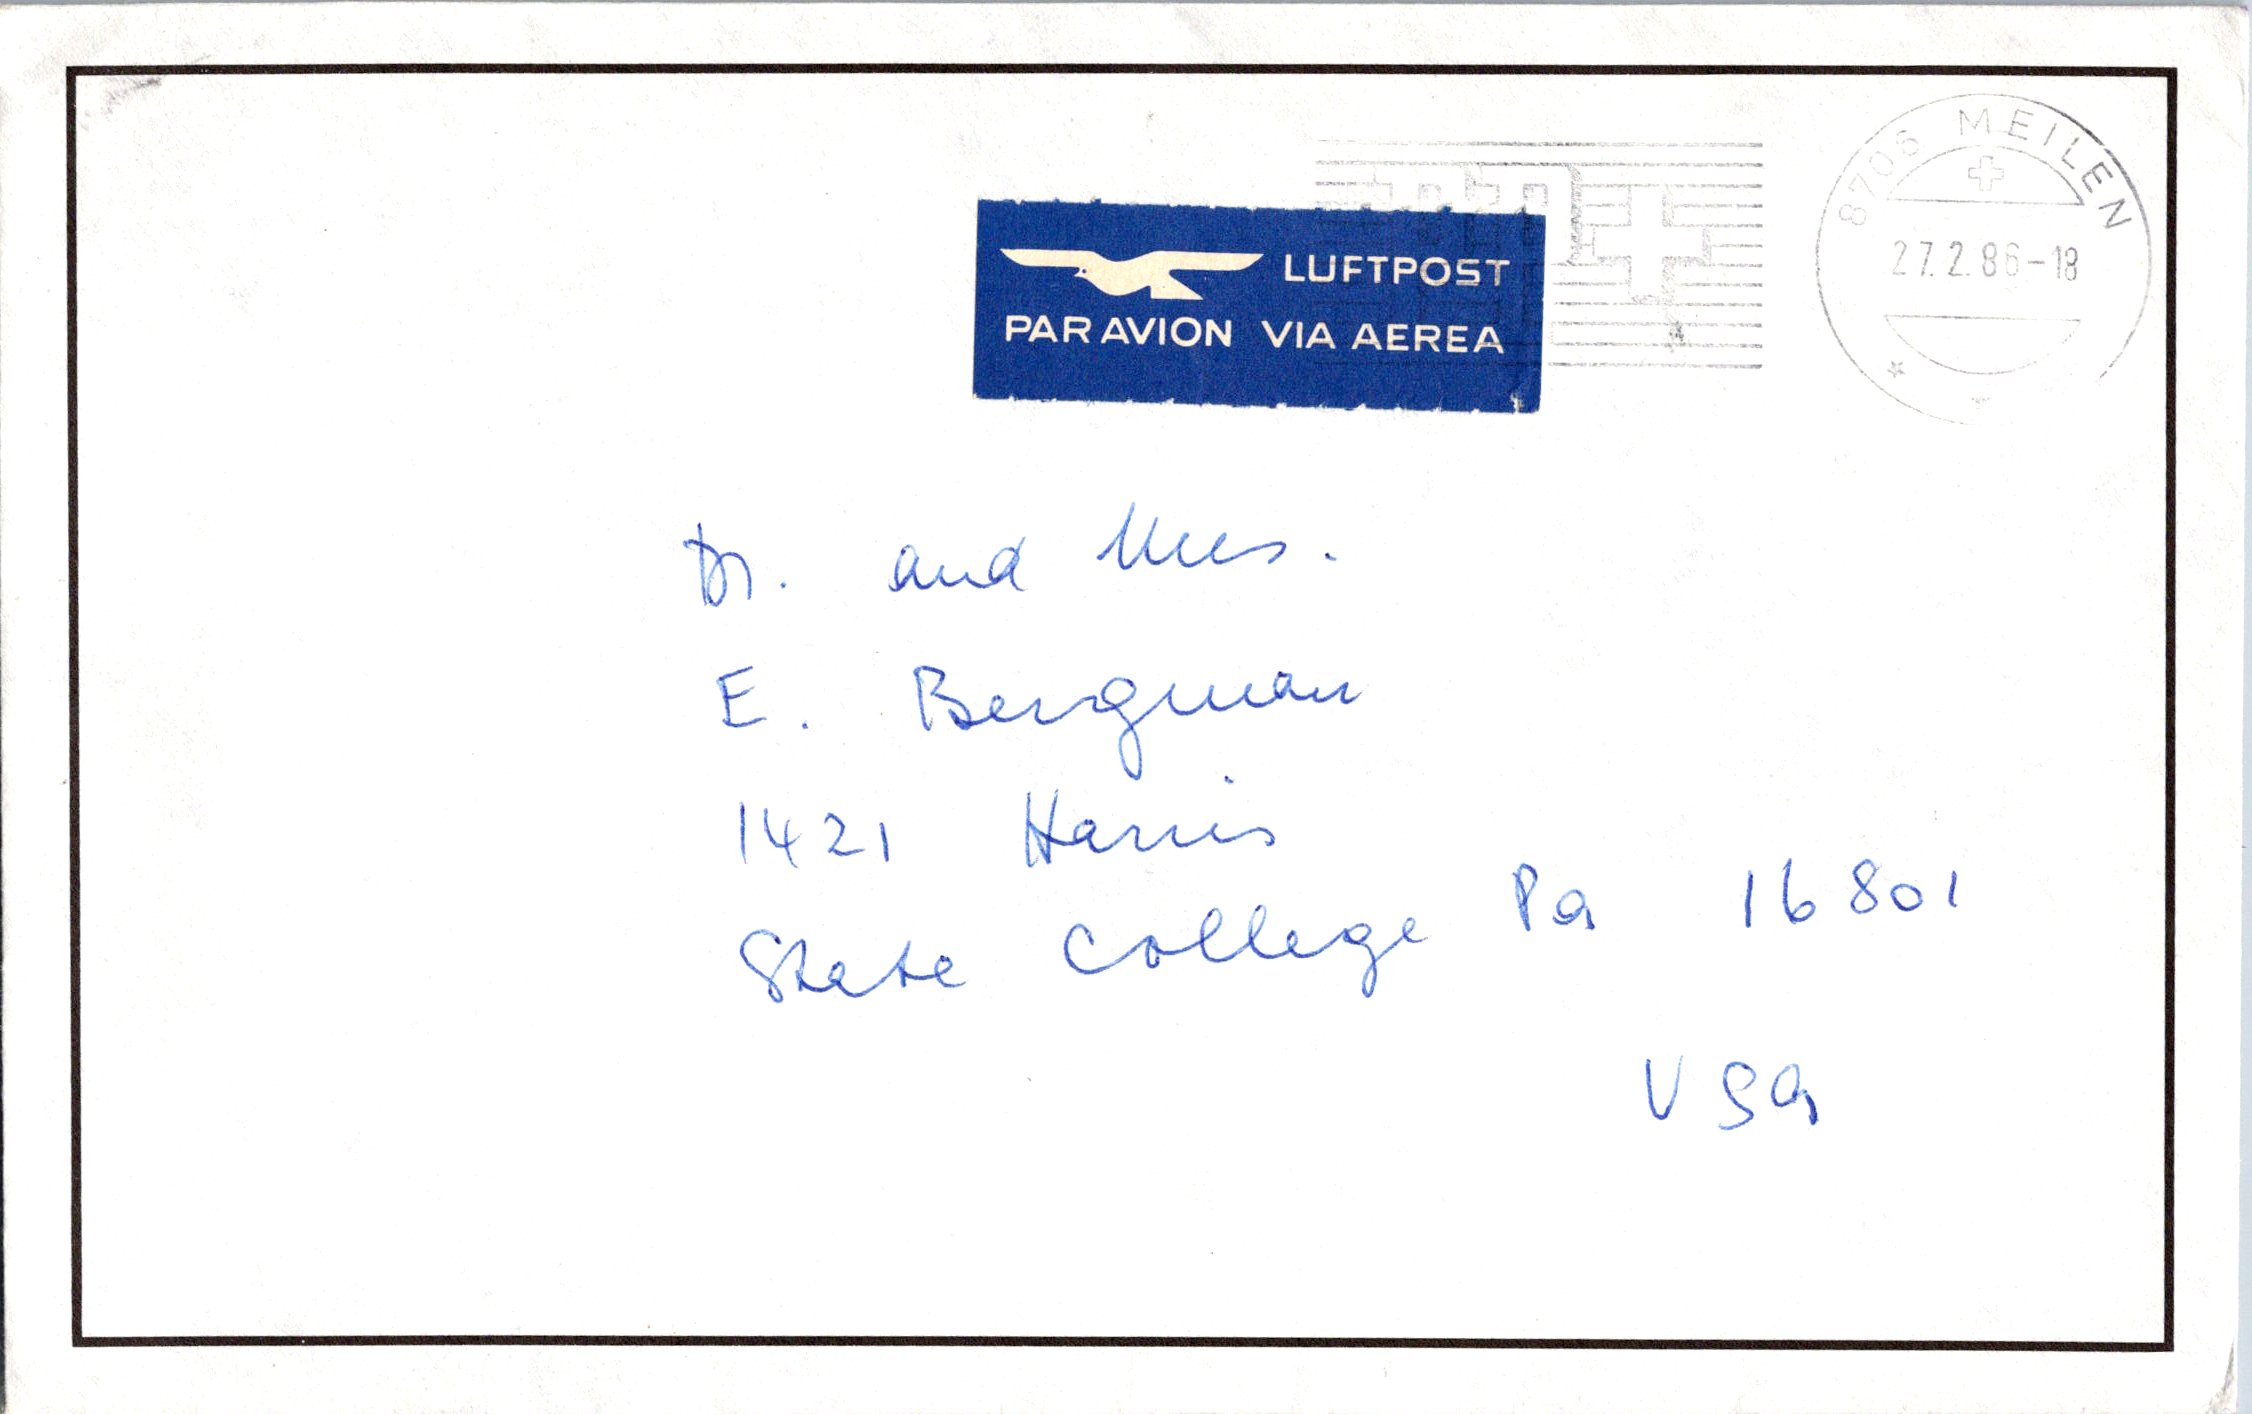 8706 MEILEN
27.2.86-18
LUFTPOST
PAR AVION VIA AEREA
Dr. and Mrs.
E. Bergman
1421 Harris
State College Pa 16801
USA